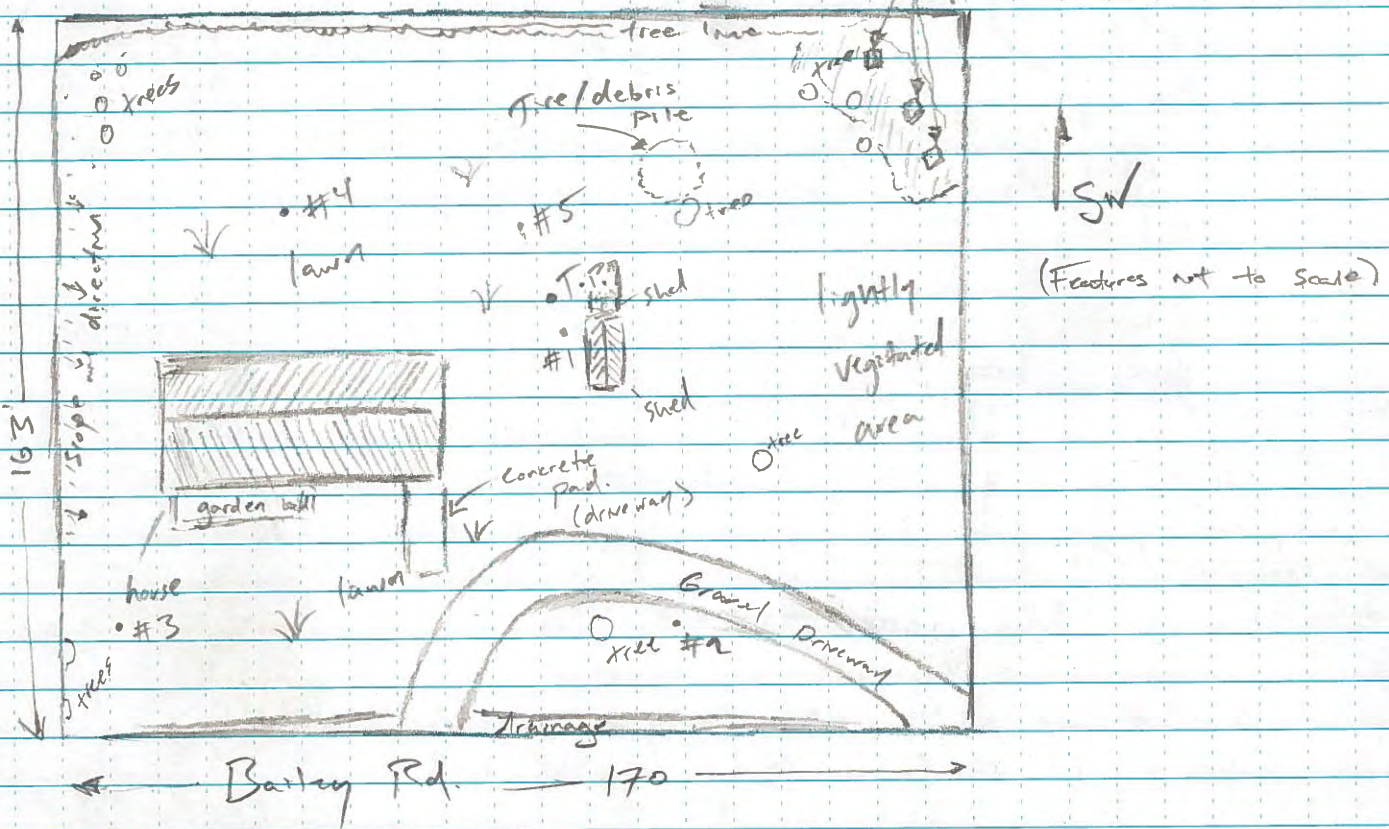 tree line
trees
tree
Tire/debris
pile
tree
SW
(Features not to scale)
#4
lawn
#5
T.P.
shed
#1
shed
lightly
vegitated
area
tree
slope direction
163'
concrete
pad.
(driveway)
garden
house
lawn
#3
Gravel Driveway
tree
trees
Drainage
Bailey Rd. 170